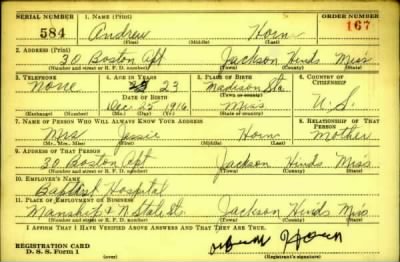 SERIAL NUMBER 1. NAME (Print) ORDER NUMBER
584 Andrew Horn 167
(First) (Middle) (Last)
2. ADDRESS (Print)
30 Boston Apt Jackson Hinds Miss
(Number and street or R. F. D. number) (Town) (County) (State)
3. TELEPHONE 4. AGE IN YEARS 5. PLACE OF BIRTH 6. COUNTRY OF CITIZENSHIP
None 23 Madison Sta.
DATE OF BIRTH (Town or county)
Dec 25 1916 Miss U.S.
(Exchange) (Number) (Mo.) (Day) (Yr.) (State or country)
7. NAME OF PERSON WHO WILL ALWAYS KNOW YOUR ADDRESS 8. RELATIONSHIP OF THAT PERSON
Mrs Jessie Horn Mother
(Mr., Mrs., Miss) (First) (Middle) (Last)
9. ADDRESS OF THAT PERSON
30 Boston Apt Jackson Hinds Miss
(Number and street or R. F. D. number) (Town) (County) (State)
10. EMPLOYER'S NAME
Baptist Hospital
11. PLACE OF EMPLOYMENT OR BUSINESS
Manship & N State St. Jackson Hinds Miss
(Number and street or R. F. D. number) (Town) (County) (State)
I AFFIRM THAT I HAVE VERIFIED ABOVE ANSWERS AND THAT THEY ARE TRUE.
REGISTRATION CARD
D. S. S. Form 1 (over) Horn
(Registrant's signature)